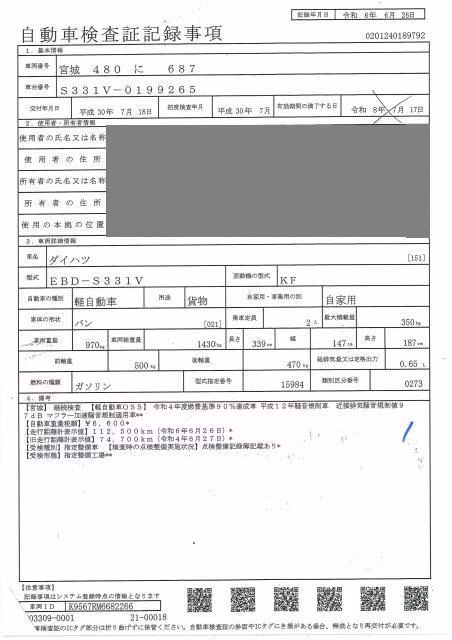 記録年月日 令和 6年 6月 26日
自動車検査証記録事項
0201240189792
1．基本情報
車両番号 宮城 480 に 687
車台番号 S331V-0199265
交付年月日 平成 30年 7月 18日 初度検査年月 平成 30年 7月 有効期間の満了する日 令和 8年 7月 17日
2．使用者・所有者情報
使用者の氏名又は名称
使用者の住所
所有者の氏名又は名称
所有者の住所
使用の本拠の位置
3．車両詳細情報
車名 ダイハツ [151]
型式 EBD-S331V 原動機の型式 KF
自動車の種別 軽自動車 用途 貨物 自家用・事業用の別 自家用
車体の形状 バン [021] 乗車定員 2人 最大積載量 350kg
車両重量 970kg 車両総重量 1430kg 長さ 339cm 幅 147cm 高さ 187cm
前軸重 500kg 後軸重 470kg 総排気量又は定格出力 0.65 L
燃料の種類 ガソリン 型式指定番号 15984 類別区分番号 0273
4．備考
【宮城】 継続検査 【軽自動車OSS】 令和4年度燃費基準90％達成車 平成12年騒音規制車 近接排気騒音規制値9
7dB マフラー加速騒音規制適用車**
【自動車重量税額】￥6,600*
【走行距離計表示値】112,500km（令和6年6月26日）*
【旧走行距離計表示値】74,700km（令和4年6月27日）*
【受検種別】指定整備車 【検査時の点検整備実施状況】点検整備記録簿記載あり*
【受検形態】指定整備工場**
【注意事項】
記録事項はシステム登録時点の情報となります
車両ID K9567RM6682266
03309-0001 21-00018
車検査証のICタグ部分は折り曲げずに保管ください。自動車検査証の券面やICタグにき損がある場合、無効となり再交付が必要です。